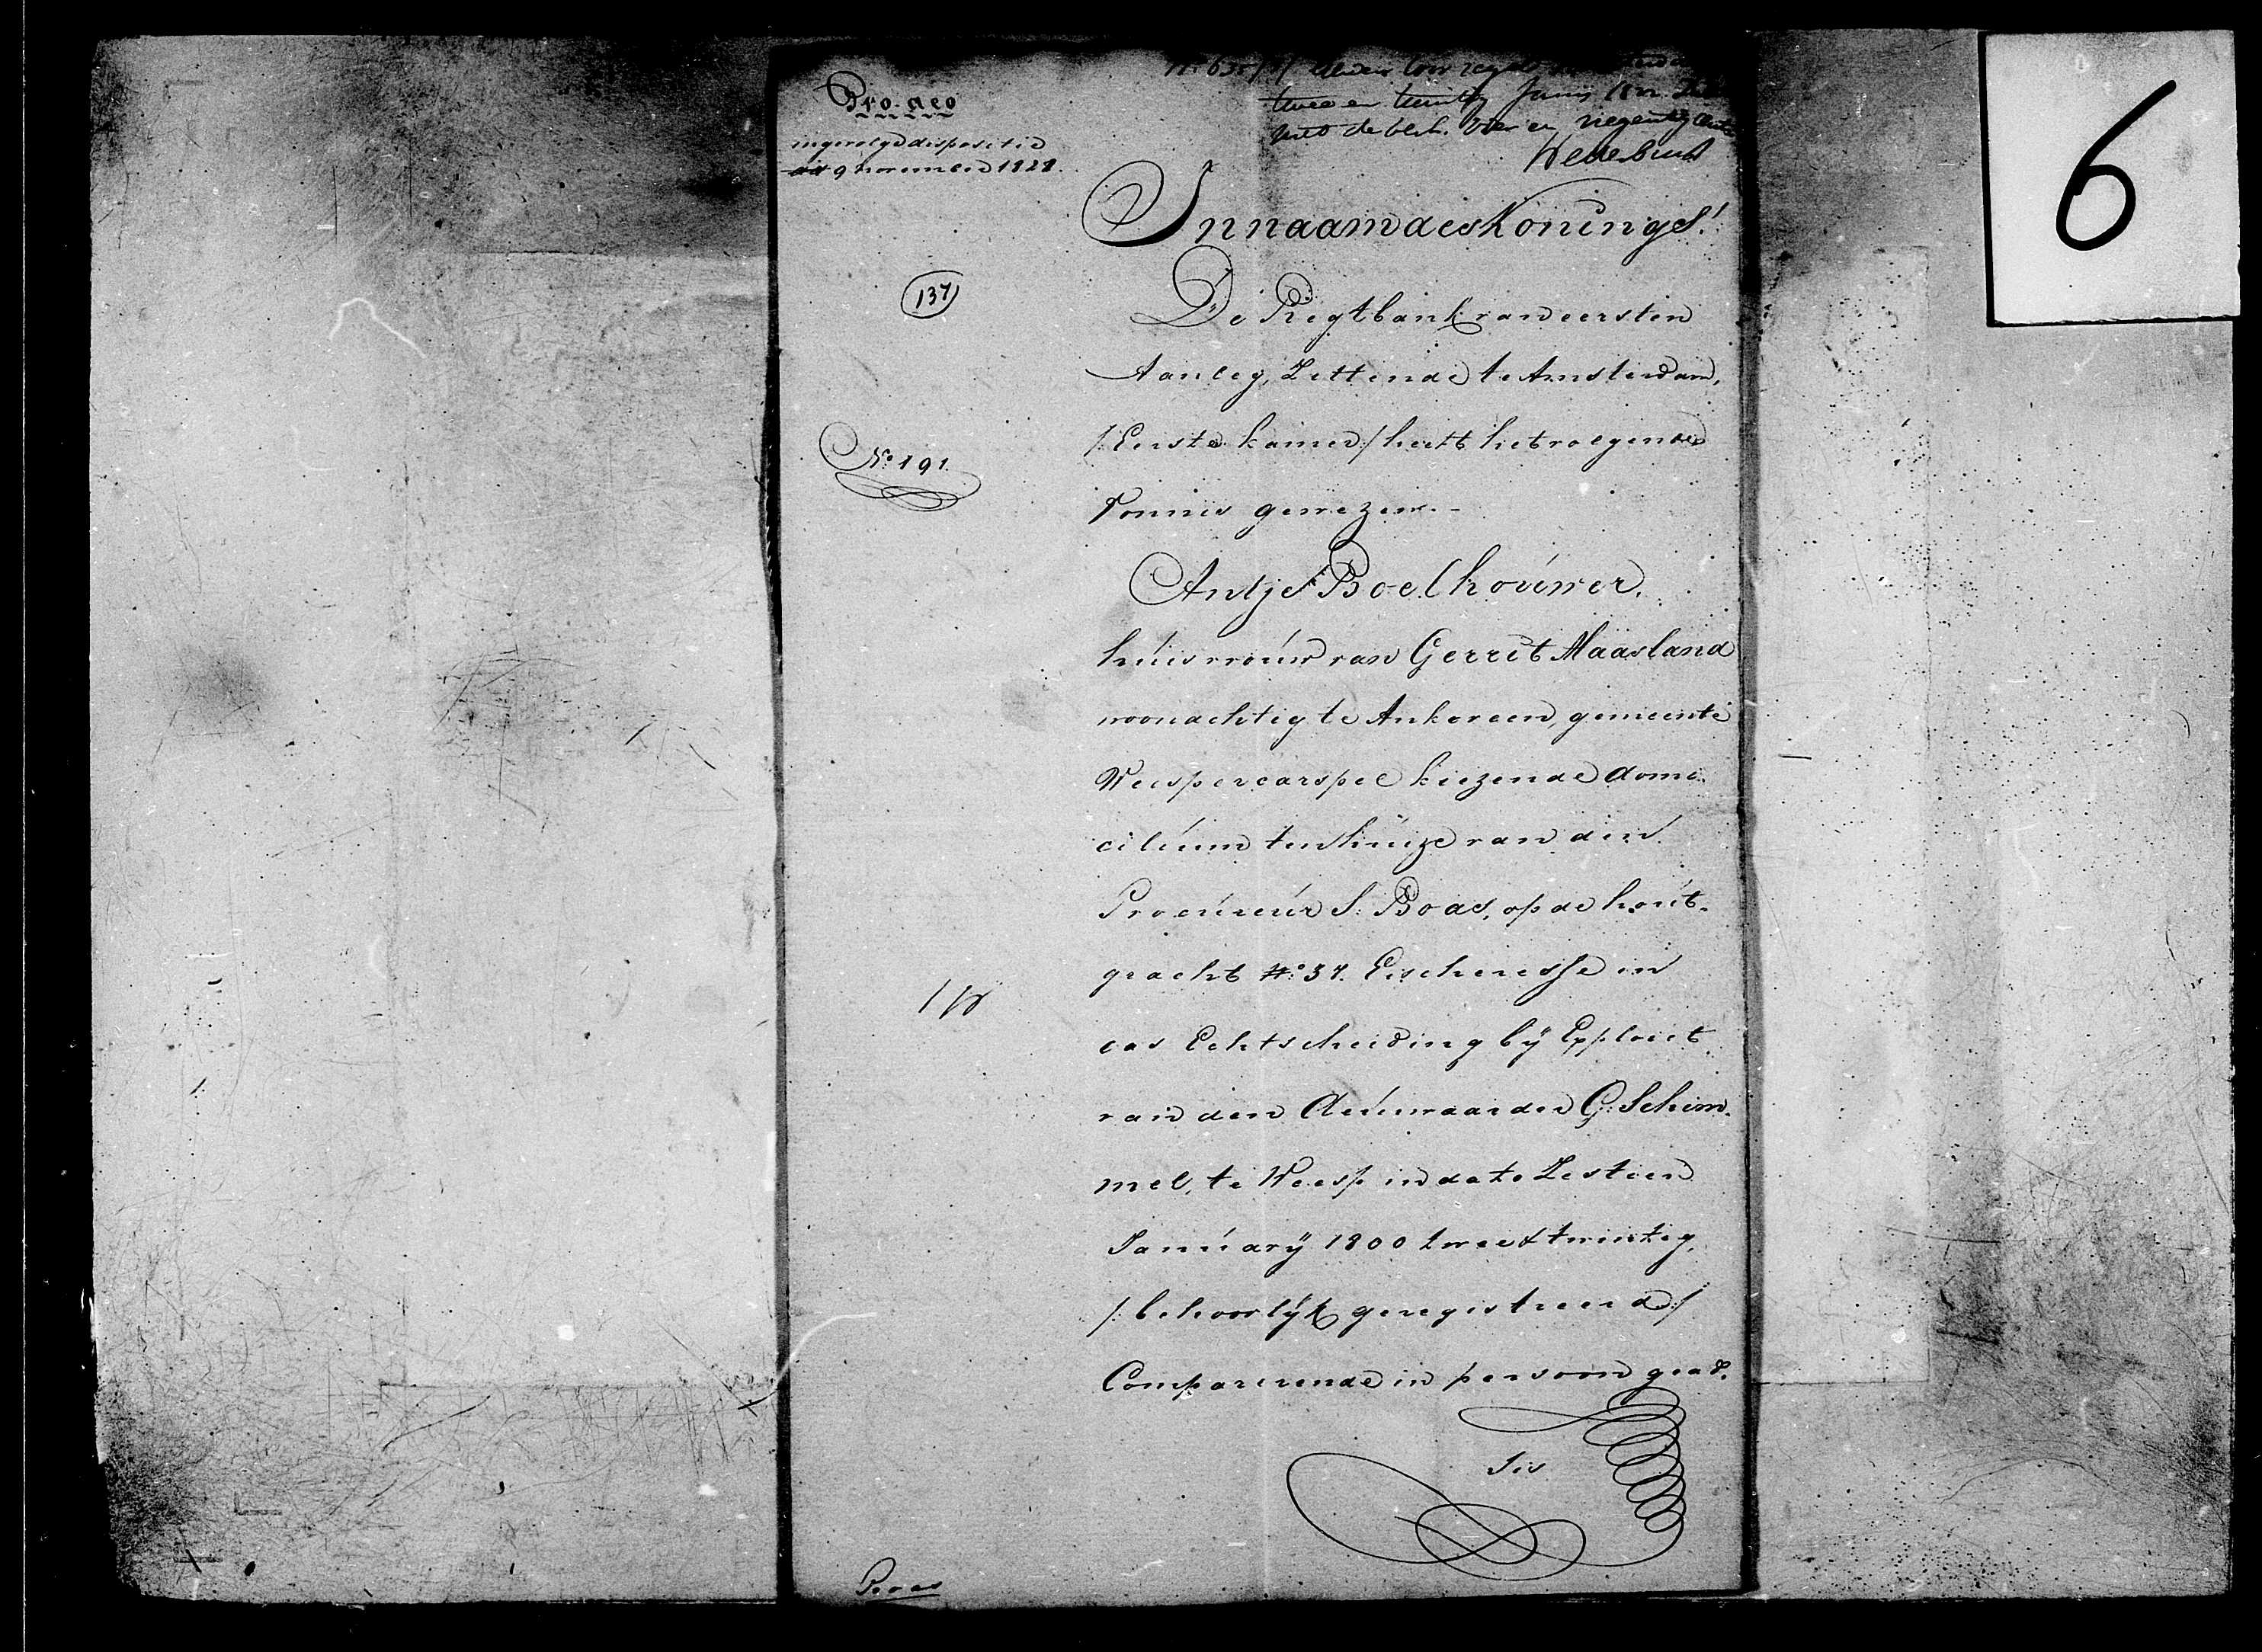 Pro. deo
ingevolge dispositie
dd 9 november 1821.
twee en twintig Juny
met de besl. vier en negentig
In naam des Konings!
137
De Regtbank van eersten
Aanleg, Zittende te Amsterdam,
/:Eerste kamer:/ heeft het volgende
Vonnis gewezen.-
No. 191
Antje Boelhouwer,
huisvrouw van Gerrit Maasland
woonachtig te Ankeveen, gemeente
Weespercarspel kiezende domi-
cilium ten huize van den
Procureur S: Boas, op de hout-
gracht No. 37. Eischeresse in
cas Echtscheiding bÿ Exploict
van den Deurwaarder G: Schim-
mel, te Weesp in dato Zestien
Januarÿ 1800 twee & twintig,
/:behoorlÿk geregistreerd:/
Comparerende in persoon gead-
sis
Boas
6